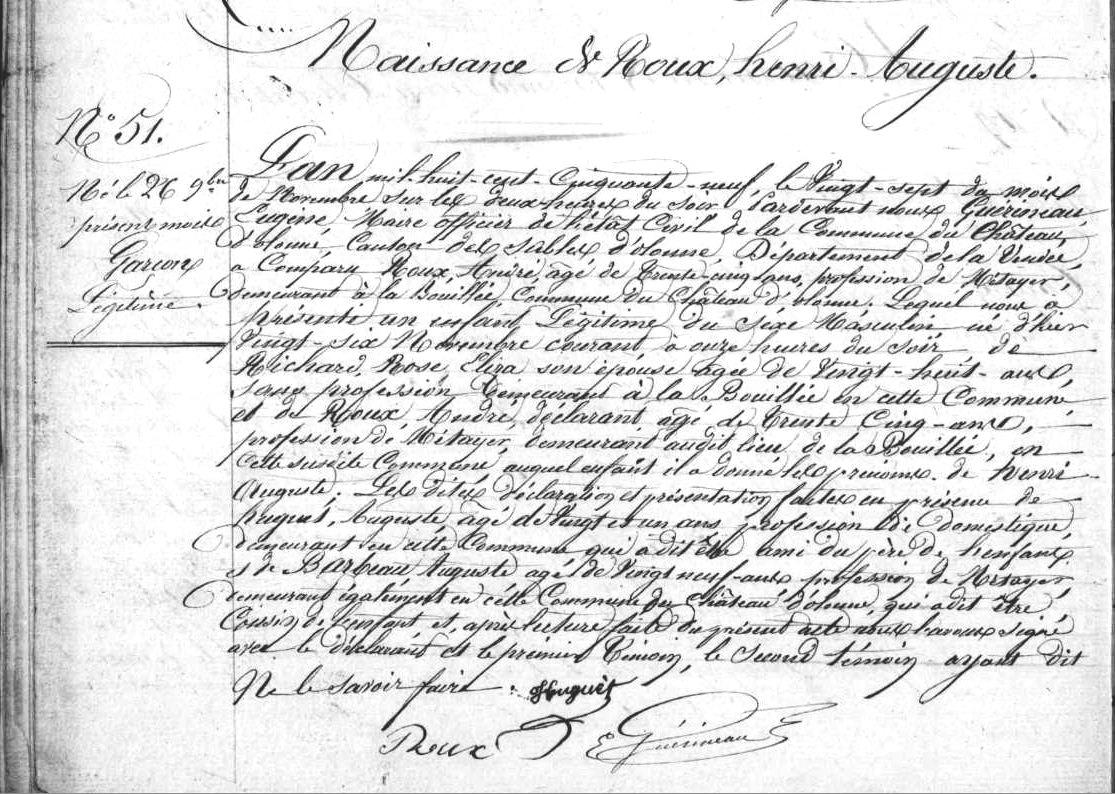 Naissance de Roux, henri-Auguste.
N° 51.
Né le 26 9bre
présent mois
Garçon
Légitime.
L'an mil-huit-cent-Cinquante-neuf, le Vingt-sept du mois
de Novembre sur les deux-heures du soir, pardevant nous Guérineau
Eugène, Maire officier de l'état Civil de la Commune du Château
d'olonne, Canton des sables d'olonne, Département de la Vendée,
a Comparu Roux, André, agé de Trente-cinq ans, profession de Métayer,
demeurant à la Bouillée, Commune du Château d'olonne. Lequel nous a
présenté un enfant Légitime du séxe Masculin, né d'hier
Vingt-six Novembre courant, à onze heures du soir, de
Richard, Rose, Eliza son épouse agée de Vingt-huit-ans,
sans profession, demeurant à la Bouillée en cette Commune
et de Roux, André, déclarant, agé de Trente Cinq-ans,
profession de Métayer, demeurant audit lieu de la Bouillée, en
cette susdite Commune, auquel enfant il a donné les prénoms de henri
Auguste. Les dites déclaration et présentation faites en présence de
huguet, Auguste, agé de Vingt et un ans, profession de Domestique,
demeurant en cette Commune qui a dit être ami du père de l'enfant
et de Barbeau Auguste agé de Vingt neuf-ans profession de Métayer,
demeurant également en cette Commune du Château d'olonne, qui a dit être
Cousin de l'enfant et, après lecture faite du présent acte nous l'avons signé
avec le déclarant et le premier Témoin, le second témoin ayant dit
Ne le savoir faire. Huguet
Roux E Guérineau